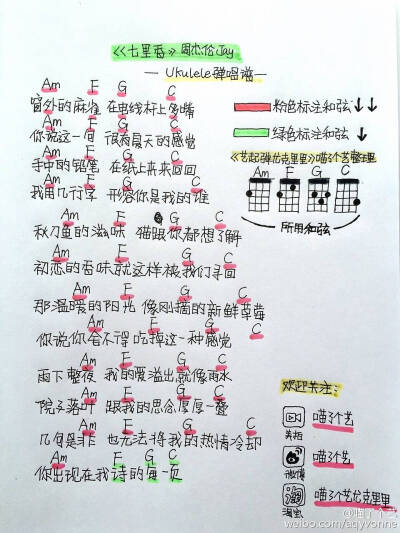 《七里香》周杰伦Jay
— Ukulele弹唱谱 —
Am F G C
窗外的麻雀 在电线杆上多嘴
Am F G C
你说这一句 很有夏天的感觉
Am F G C
手中的铅笔 在纸上来来回回
Am F G C
我用几行字 形容你是我的谁
Am F G C
秋刀鱼的滋味 猫跟你都想了解
Am F G C
初恋的香味就这样被我们寻回
Am F G C
那温暖的阳光 像刚摘的新鲜草莓
Am F G C
你说你舍不得吃掉这一种感觉
Am F G C
雨下整夜 我的爱溢出就像雨水
Am F G C
院子落叶 跟我的思念厚厚一叠
Am F G C
几句是非 也无法将我的热情冷却
Am F G C
你出现在我诗的每一页
粉色标注和弦↓↓
绿色标注和弦↓
《艺起弹尤克里里》喵了个艺整理
Am F G C
所用和弦
欢迎关注:
喵了个艺
美拍
喵了个艺
微博
喵了个艺尤克里里
淘
淘宝
@喵了个艺
weibo.com/aqyvonne